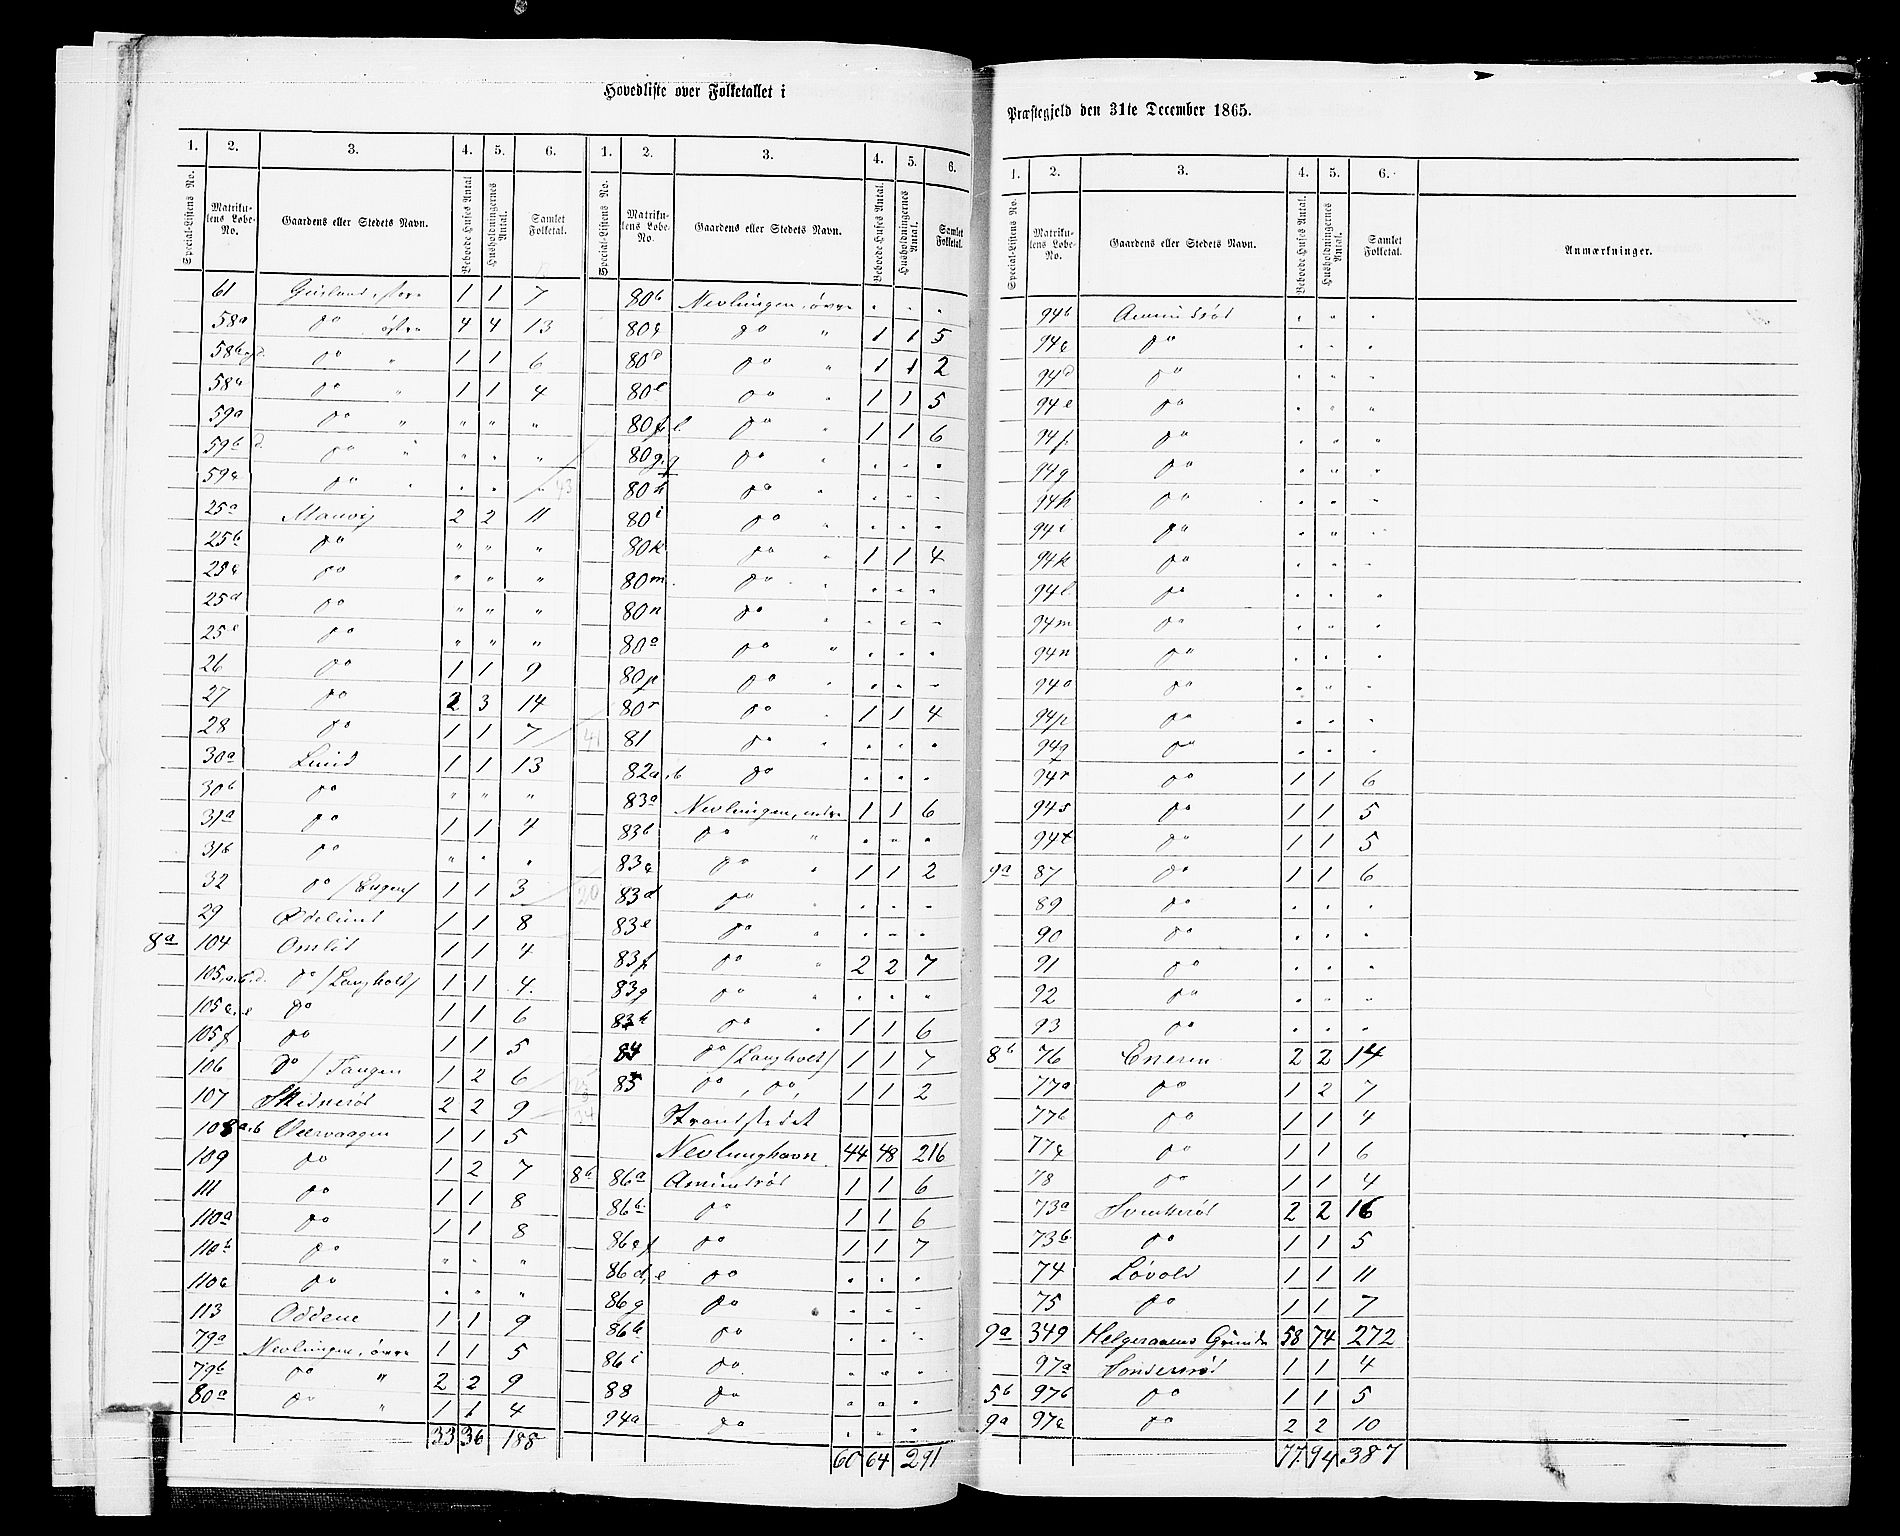 Hovedliste over Folketallet i
1. 2. 3. 4. 5. 6. 1. 2. 3. 4. 5. 6.
Special-Listens No. Matrikulens Løbe-No. Gaardens eller Stedets Navn. Beboede Huses Antal Husholdningernes Antal. Samlet Folketal. Special-Listens No. Matrikulens Løbe-No. Gaardens eller Stedets Navn. Beboede Huses Antal. Husholdningernes Antal. Samlet Folketal.
61 1 1 7
58a do østre 4 4 13
do " 1 1 6
58c do " 1 1 4
59a do " " " "
59b d. do " " " "
59c do " " " " 43
25a Manvig 2 2 11
25b do " " "
25c do " " "
25d do " " "
25e do " " "
26 do 1 1 9
27 do 2 3 14
28 do 1 1 7 41
30a Lund 1 1 13
30b do " " "
31a do 1 1 4
31b do " " "
32 do 1 1 3 20
29 Ødelund 1 1 8
8a 104 Omlid 1 1 4
105a.b.d. do /Langholt/ 1 1 4
105c,e do 1 1 6
105f do 1 1 5
106 do /Tangen 1 2 6 25
107 2 2 9
108a.b 1 1 5
109 do 1 2 7
111 do 1 1 8
110a do 1 1 8
110b do " " "
110c do " " "
113 Oddene 1 1 9
79a Nevlungen, øvre 1 1 5
79b do " 2 2 9
80a do " 1 1 4
33 36 188
80b Nevlungen, øvre " " "
80c do " 1 1 5
80d do " 1 1 2
80e do " 1 1 5
80f l. do " 1 1 6
80g.q do " " " "
80h do " " " "
80i do " " " "
80k do " 1 1 4
80m. do " " " "
80n do " " " "
80o do " " " "
80p do " " " "
80r do " 1 1 4
81 do " " " "
82a.b do " " "
83a Nevlungen, nedre 1 1 6
83b do " " " "
83c do " 1 1 2
83d do " " " "
83e do " " " "
83f do " 2 2 7
83g do " " " "
83h do " 1 1 6
84 do /Langholt/ 1 1 7
85 do, do, 1 1 2
Strandstedet
Nevlunghavn. 44 48 216
8b 86a Amundrød 1 1 6
86b. do 1 1 6
86c f do 1 1 7
86d, e do " " "
86g do " " "
86h do " " "
86i do " " "
88 do " " "
94a do " " "
60 64 291
Præstegjeld den 31te December 1865.
1. 2. 3. 4. 5. 6.
Special-Listens No. Matrikulens Løbe-No. Gaardens eller Stedets Navn. Beboede Huses Antal. Husholdningernes Antal. Samlet Folketal. Anmærkninger.
94b Amundrød " " "
94c do " " "
94d do " " "
94e do " " "
94f do " " "
94g do " " "
94h do " " "
94i do " " "
94k do " " "
94l do " " "
94m do " " "
94n do " " "
94o do " " "
94p do " " "
94q do " " "
94r do 1 1 6
94s do 1 1 5
94t do 1 1 5
9a 87 do 1 1 6
89 do " " "
90 do " " "
91 do " " "
92 do " " "
93 do " " "
8b 76 Eneren 2 2 14
77a do 1 2 7
77b do 1 1 4
77c do 1 1 6
78 do 1 1 4
73a 2 2 16
73b do 1 1 5
74 Løvold 1 1 11
75 do 1 1 7
9a 349 Helgeraaens Grunde 58 74 272
97a 1 1 4
5b 97b do 1 1 5
9a 97c do 2 2 10
77 94 387